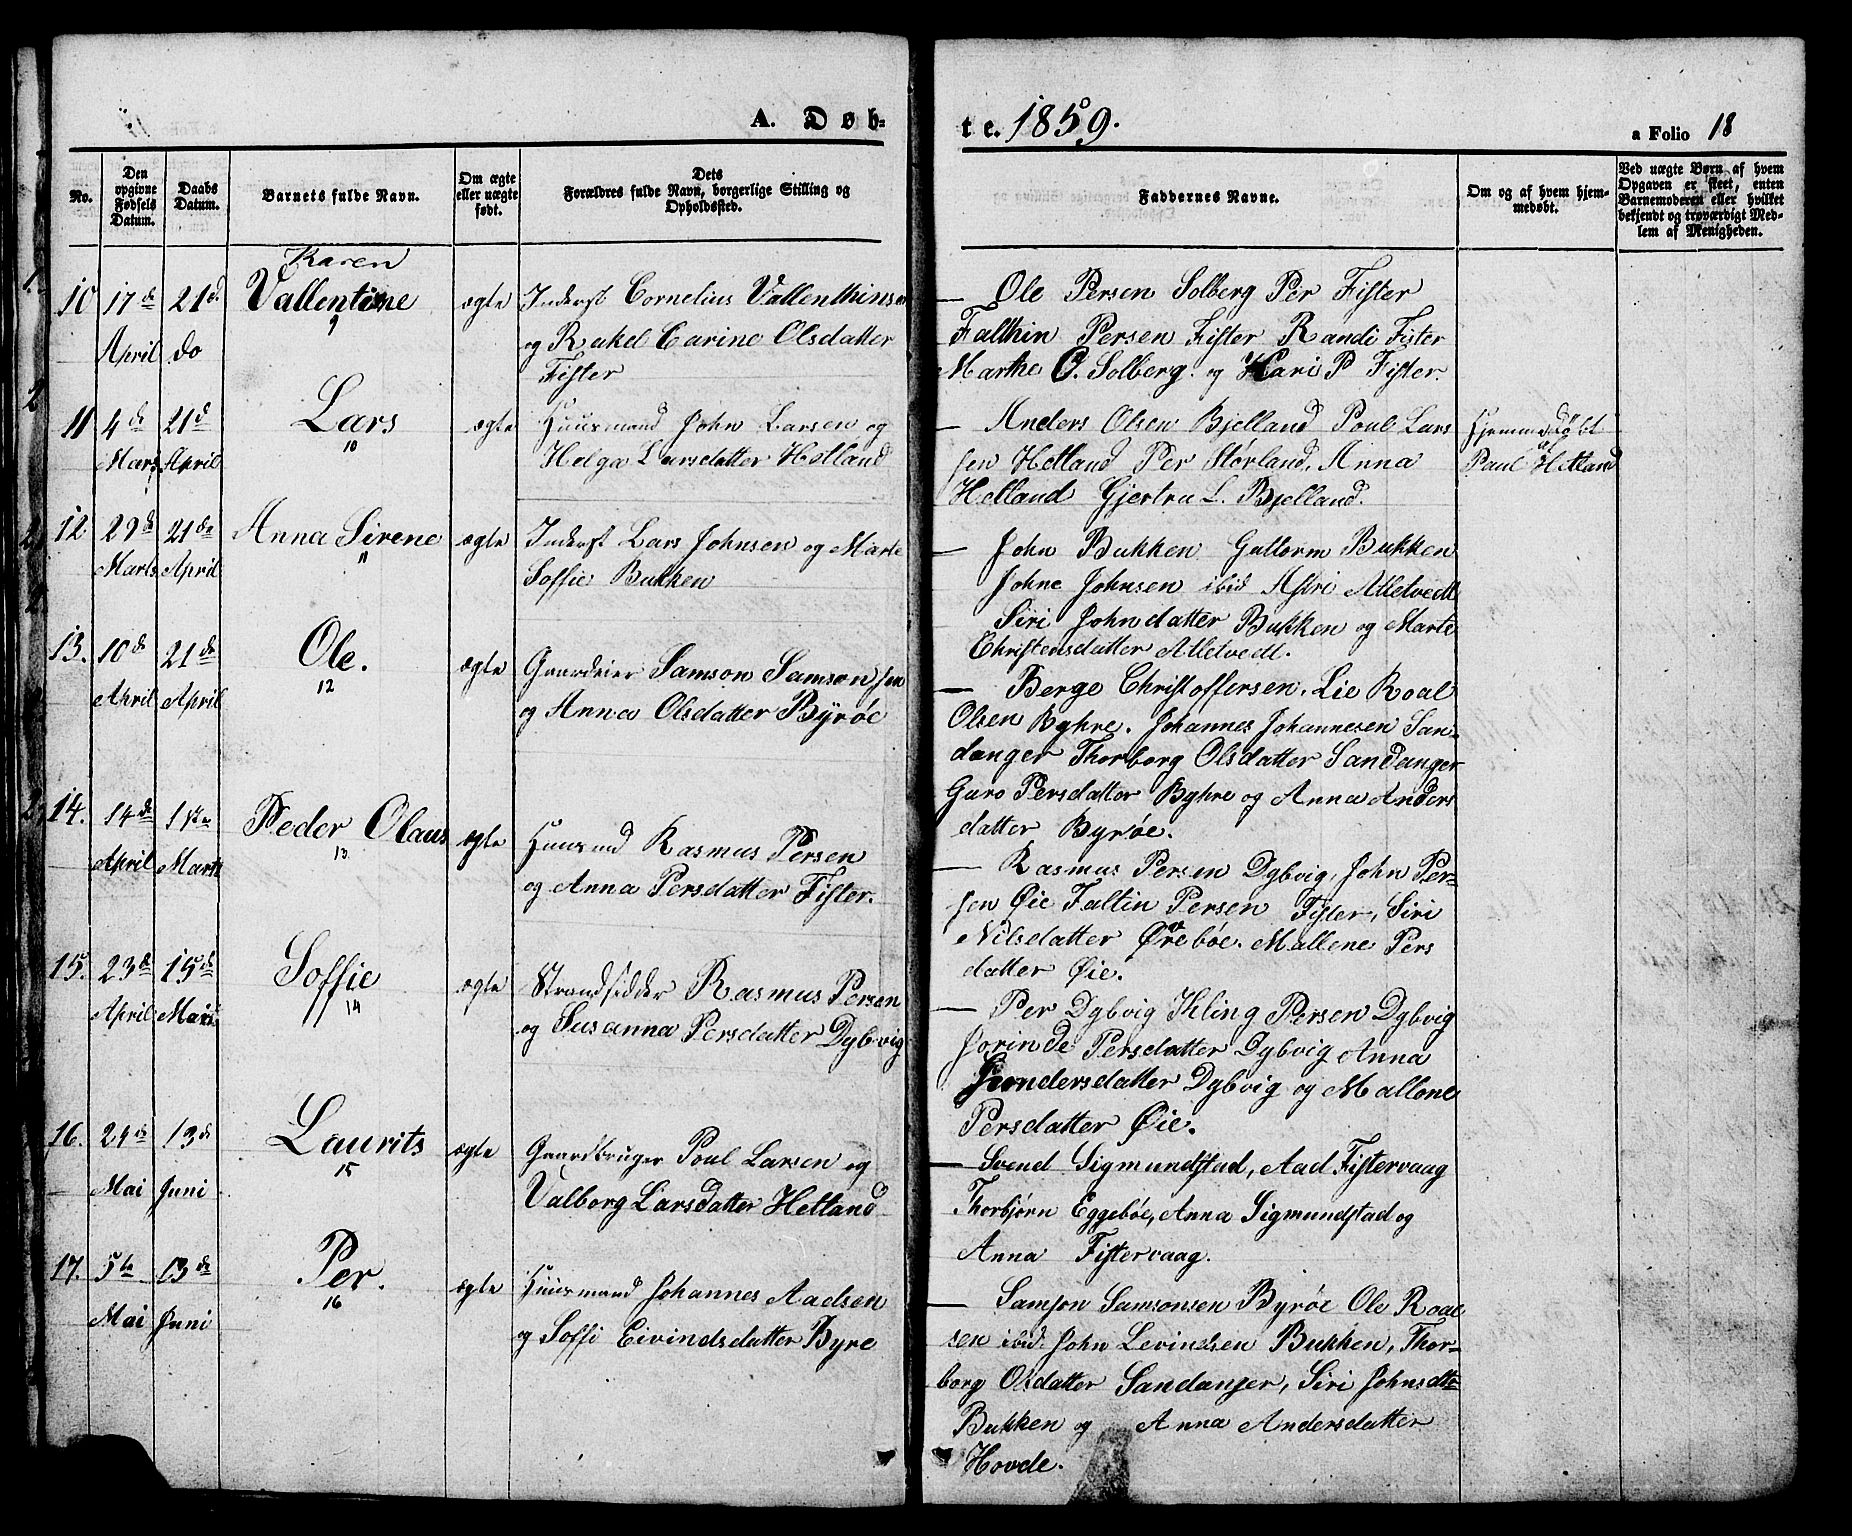 A. Døb-
te. 1859.
a Folio 18
No.
Den opgivne Fødsels Datum.
Daabs Datum.
Barnets fulde Navn.
Om ægte eller uægte født.
Dets
Forældres fulde Navn, borgerlige Stilling og Opholdssted.
Faddernes Navne.
Om og af hvem hjemmedøbt.
Ved uægte Børn af hvem Opgaven er skeet, enten Barnemoderen eller hvilket bekjendt og troværdigt Medlem af Menigheden.
Karen
10 17de 21d. Vallentine ægte Inderst Cornelius Vallenthinsen
April do 9 og Rakel Carine Olsdatter
Fister
— Ole Persen Solberg Per Fister
Falthin Persen Fister Randi Fister
Marthe O. Solberg. og Kari P Fister.
11 4de 21d Lars ægte Huusmand John Larsen og
Marts April 10 Helga Larsdatter Hetland
— Anders Olsen Bjelland Poul Lars
sen Hetland Per Størland, Anna
Helland Gjertru L. Bjelland.
Hjemmedøbt
af
Paul Hetland
12 29de 21de Anna Sirene ægte Inderst Lars Johnsen og Marte
Marts April 11 Soffie Bukken
— John Bukken Guttorm Bukken
Johne Johnsen ibid Astri Alletvedt
Siri Johndatter Bukken og Marte
Christensdatter Alletvedt.
13. 10de 21de Ole. ægte Gaardeier Samson Samsonsen
April April 12 og Anna Olsdatter Byrøe
— Berge Christoffersen, Lie Roal
Olsen Byhre. Johannes Johannesen San-
danger Thorborg Olsdatter Sandanger
Guro Persdatter Byhre og Anna Anders
datter Byrøe.
14. 14de 1ste Peder Olaus ægte Huusmd Rasmus Persen
April Marts 13 og Anna Persdatter Fister.
— Rasmus Persen Dybvig, John Per-
sen Øie Faltin Persen Fister, Siri
Nilsdatter Ørebøe. Mallene Pers
datter Øie.
15. 23de 15de Soffie ægte Strandsidder Rasmus Persen
April 14 og Susanna Persdatter Dybvig
— Per Dybvig Persen Dybvig
Persdatter Dybvig Anna
Dybvig og Mallene
Persdatter Øie.
16. 24de 13de Laurits ægte Gaardbruger Poul Larsen og
Mai Juni 15 Valborg Larsdatter Hetland
— Svend Sigmundstad, Aad Fistervaag
Thorbjørn Eggebøe, Anna Sigmundstad og
Anna Fistervaag.
17. 5te 13de Per. ægte Huusmand Johannes Aadsen
Mai Juni 16 og Soffi Eivindsdatter Byre
— Samson Samsonsen Byrøe Ole Roal
sen ibid. John Levindsen Bukken, Thor-
borg Olsdatter Sandanger, Siri Johnsdtr
Bukken og Anna Andersdatter
Hovde.